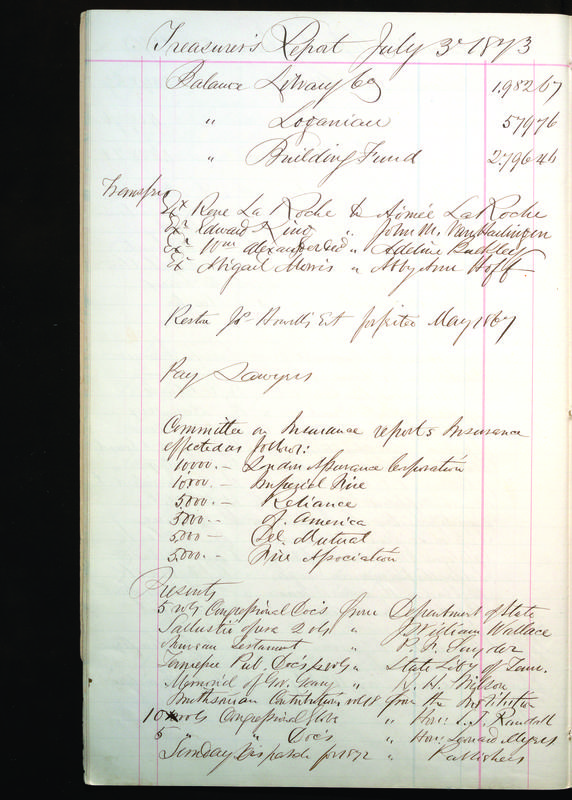 Treasurer's Report July 3d 1873
Balance Library Co 1.982 67
" Loganian 579 76
" Building Fund 2.796 44
Transfers
Exr Rene La Roche to Aimée LaRoche
Exr Edward King " John M. Van Harlingen
Exr Wm Alexander decd " Adeline Buckley
Exr Abigail Morris " Abby Ann Hoff.
Restore Js Howell's Est forfeited May 1867
Pay Sawyers
Committee on Insurance reports Insurance
effected as follows:
10,000.- London Assurance Corporation
10,000.- Imperial Fire
5,000.- Reliance
5,000.- of. America
5,000- Del. Mutual
5,000.- Fire Association
Presents
5 vols Congressional Docs from Department of State
Sallustii opera 2 vols " J. William Wallace
Testament " Snyder
Tennessee Pub. Docs vols " State Liby of Tenn.
Memorial of Gov. Geary " R. H. Wilson
Smithsonian Contributions vol 18 from the Institution
10 vols Congressional Globe " Hon: S. J. Randall
5 " " Docs " Hon: Leonard Myers
Sunday Dispatch for 1872 " Publishers